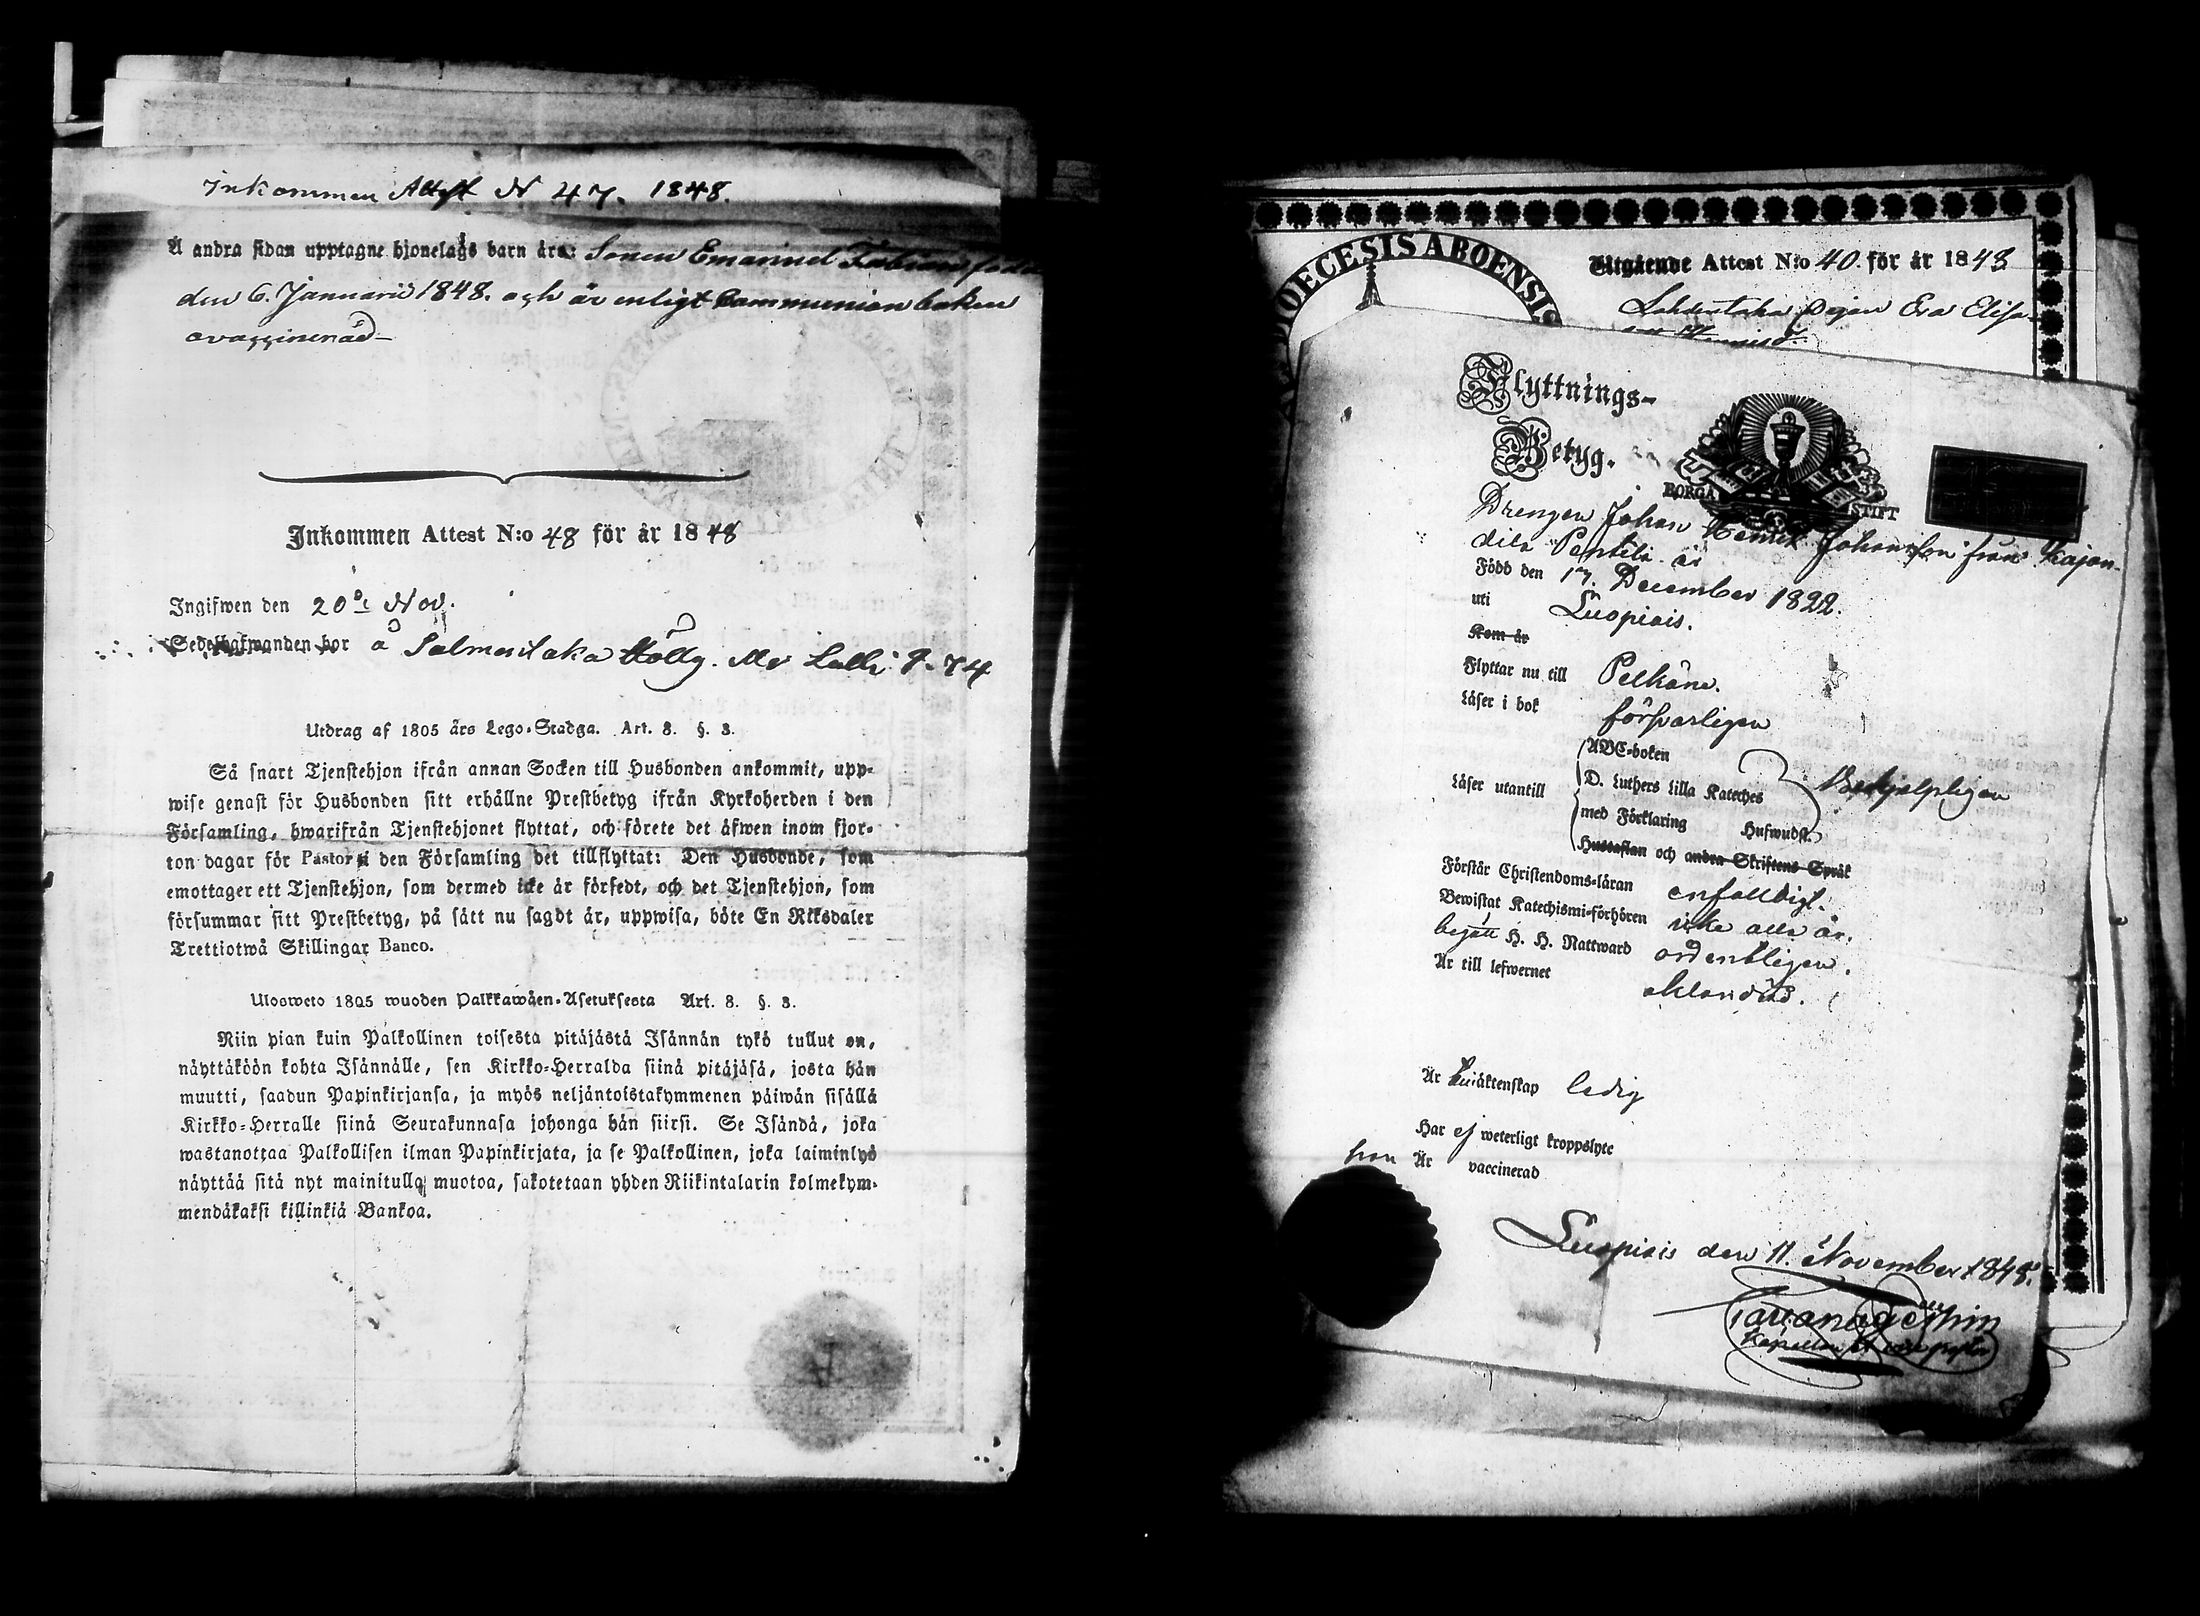 Inkommen Attest N 47. 1848.
Å andra sidan upptagne hjonelags barn äro: Sonen Emanuel Fabian född
den 6. Januarii 1848. och är enligt Communion boken
ovaccinerad
Inkommen Attest N:o 48 för år 1848
Ingifwen den 20de Nov.
Sedelhafwanden bor å Salmentaka Mölly. Me Lalli p. 74
Utdrag af 1805 års Lego-Stadga. Art. 8. §. 3.
Så snart Tjenstehjon ifrån annan Socken till Husbonden ankommit, upp-
wise genast för Husbonden sitt erhållne Prestbetyg ifrån Kyrkoherden i den
Församling, hwarifrån Tjenstehjonet flyttat, och förete det äfwen inom fjor-
ton dagar för Pastor i den Församling det tillflyttat: Den Husbonde, som
emottager ett Tjenstehjon, som dermed icke är försedt, och det Tjenstehjon, som
försummar sitt Prestbetyg, på sätt nu sagdt är, uppwisa, böte En Riksdaler
Trettiotwå Skillingar Banco.
Ulosweto 1805 wuoden Palkkawäen-Asetuksesta Art. 8. §. 3.
Niin pian kuin Palkollinen toisesta pitäjästä Isännän tykö tullut on,
näyttäköön kohta Isännälle, sen Kirkko-Herralda siinä pitäjäsä, josta hän
muutti, saadun Papinkirjansa, ja myös neljäntoistakymmenen päiwän sisällä
Kirkko-Herralle siinä Seurakunnasa johonga hän siirsi. Se Isändä, joka
wastanottaa Palkollisen ilman Papinkirjata, ja se Palkollinen, joka laiminlyö
näyttää sitä nyt mainitulla muotoa, sakotetaan yhden Riikintalarin kolmekym-
mendäkaksi killinkiä Bankoa.
DIOECESIS ABOENSIS
Utgående Attest N:o 40. för år 1848
Lahdentaka Pigan Eva Elisa-
Flyttnings-
Betyg.
BORGÅ STIFT
Drengen Johan Henrik Johansson från Kajan-
dila Pentila är
Född den 17. December 1822.
uti Luopiois.
Kom år
Flyttar nu till Pelkäne.
Läser i bok försvarligen
Läser utantill
ABC-boken
D. Luthers Lilla Kateches
med Förklaring Hufwudst.
Hustaflan och andra Skriftens Språk
Behjelpligen
Förstår Christendoms-läran enfalldigt.
Bewistat Katechismi-förhören icke alla år.
begått H. H. Nattward ordentligen.
Är till lefwernet oklandrad.
Är till äktenskap ledig
Har ej weterligt kroppslyte
Är vaccinerad
Luopiois den 11. November 1848.